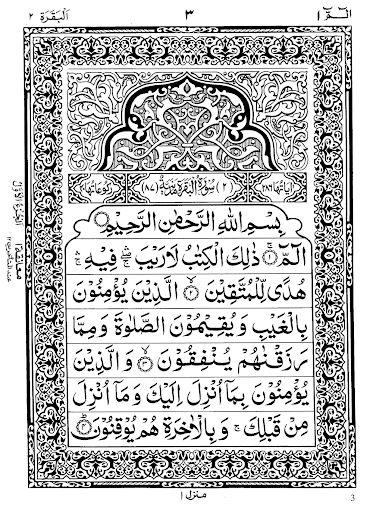 الٓمّٓ ١ ٣ اَلْبَقَرَة ٢
اٰيَاتُهَا ٢٨٦ (٢) سُوْرَةُ الْبَقَرَةِ مَدَنِيَّةٌ (٨٧) رُكُوْعَاتُهَا ٤٠
بِسْمِ اللّٰهِ الرَّحْمٰنِ الرَّحِيْمِ
الٓمّٓ ۚ ۝١ ذٰلِكَ الْكِتٰبُ لَا رَيْبَ ۛۖ فِيْهِ ۛۚ
هُدًى لِّلْمُتَّقِيْنَ ۝٢ الَّذِيْنَ يُؤْمِنُوْنَ
بِالْغَيْبِ وَيُقِيْمُوْنَ الصَّلٰوةَ وَمِمَّا
رَزَقْنٰهُمْ يُنْفِقُوْنَ ۝٣ وَالَّذِيْنَ
يُؤْمِنُوْنَ بِمَاۤ اُنْزِلَ اِلَيْكَ وَمَاۤ اُنْزِلَ
مِنْ قَبْلِكَ ۚ وَبِالْاٰخِرَةِ هُمْ يُوْقِنُوْنَ ۝٤
معانقة ١
منزل ١
3